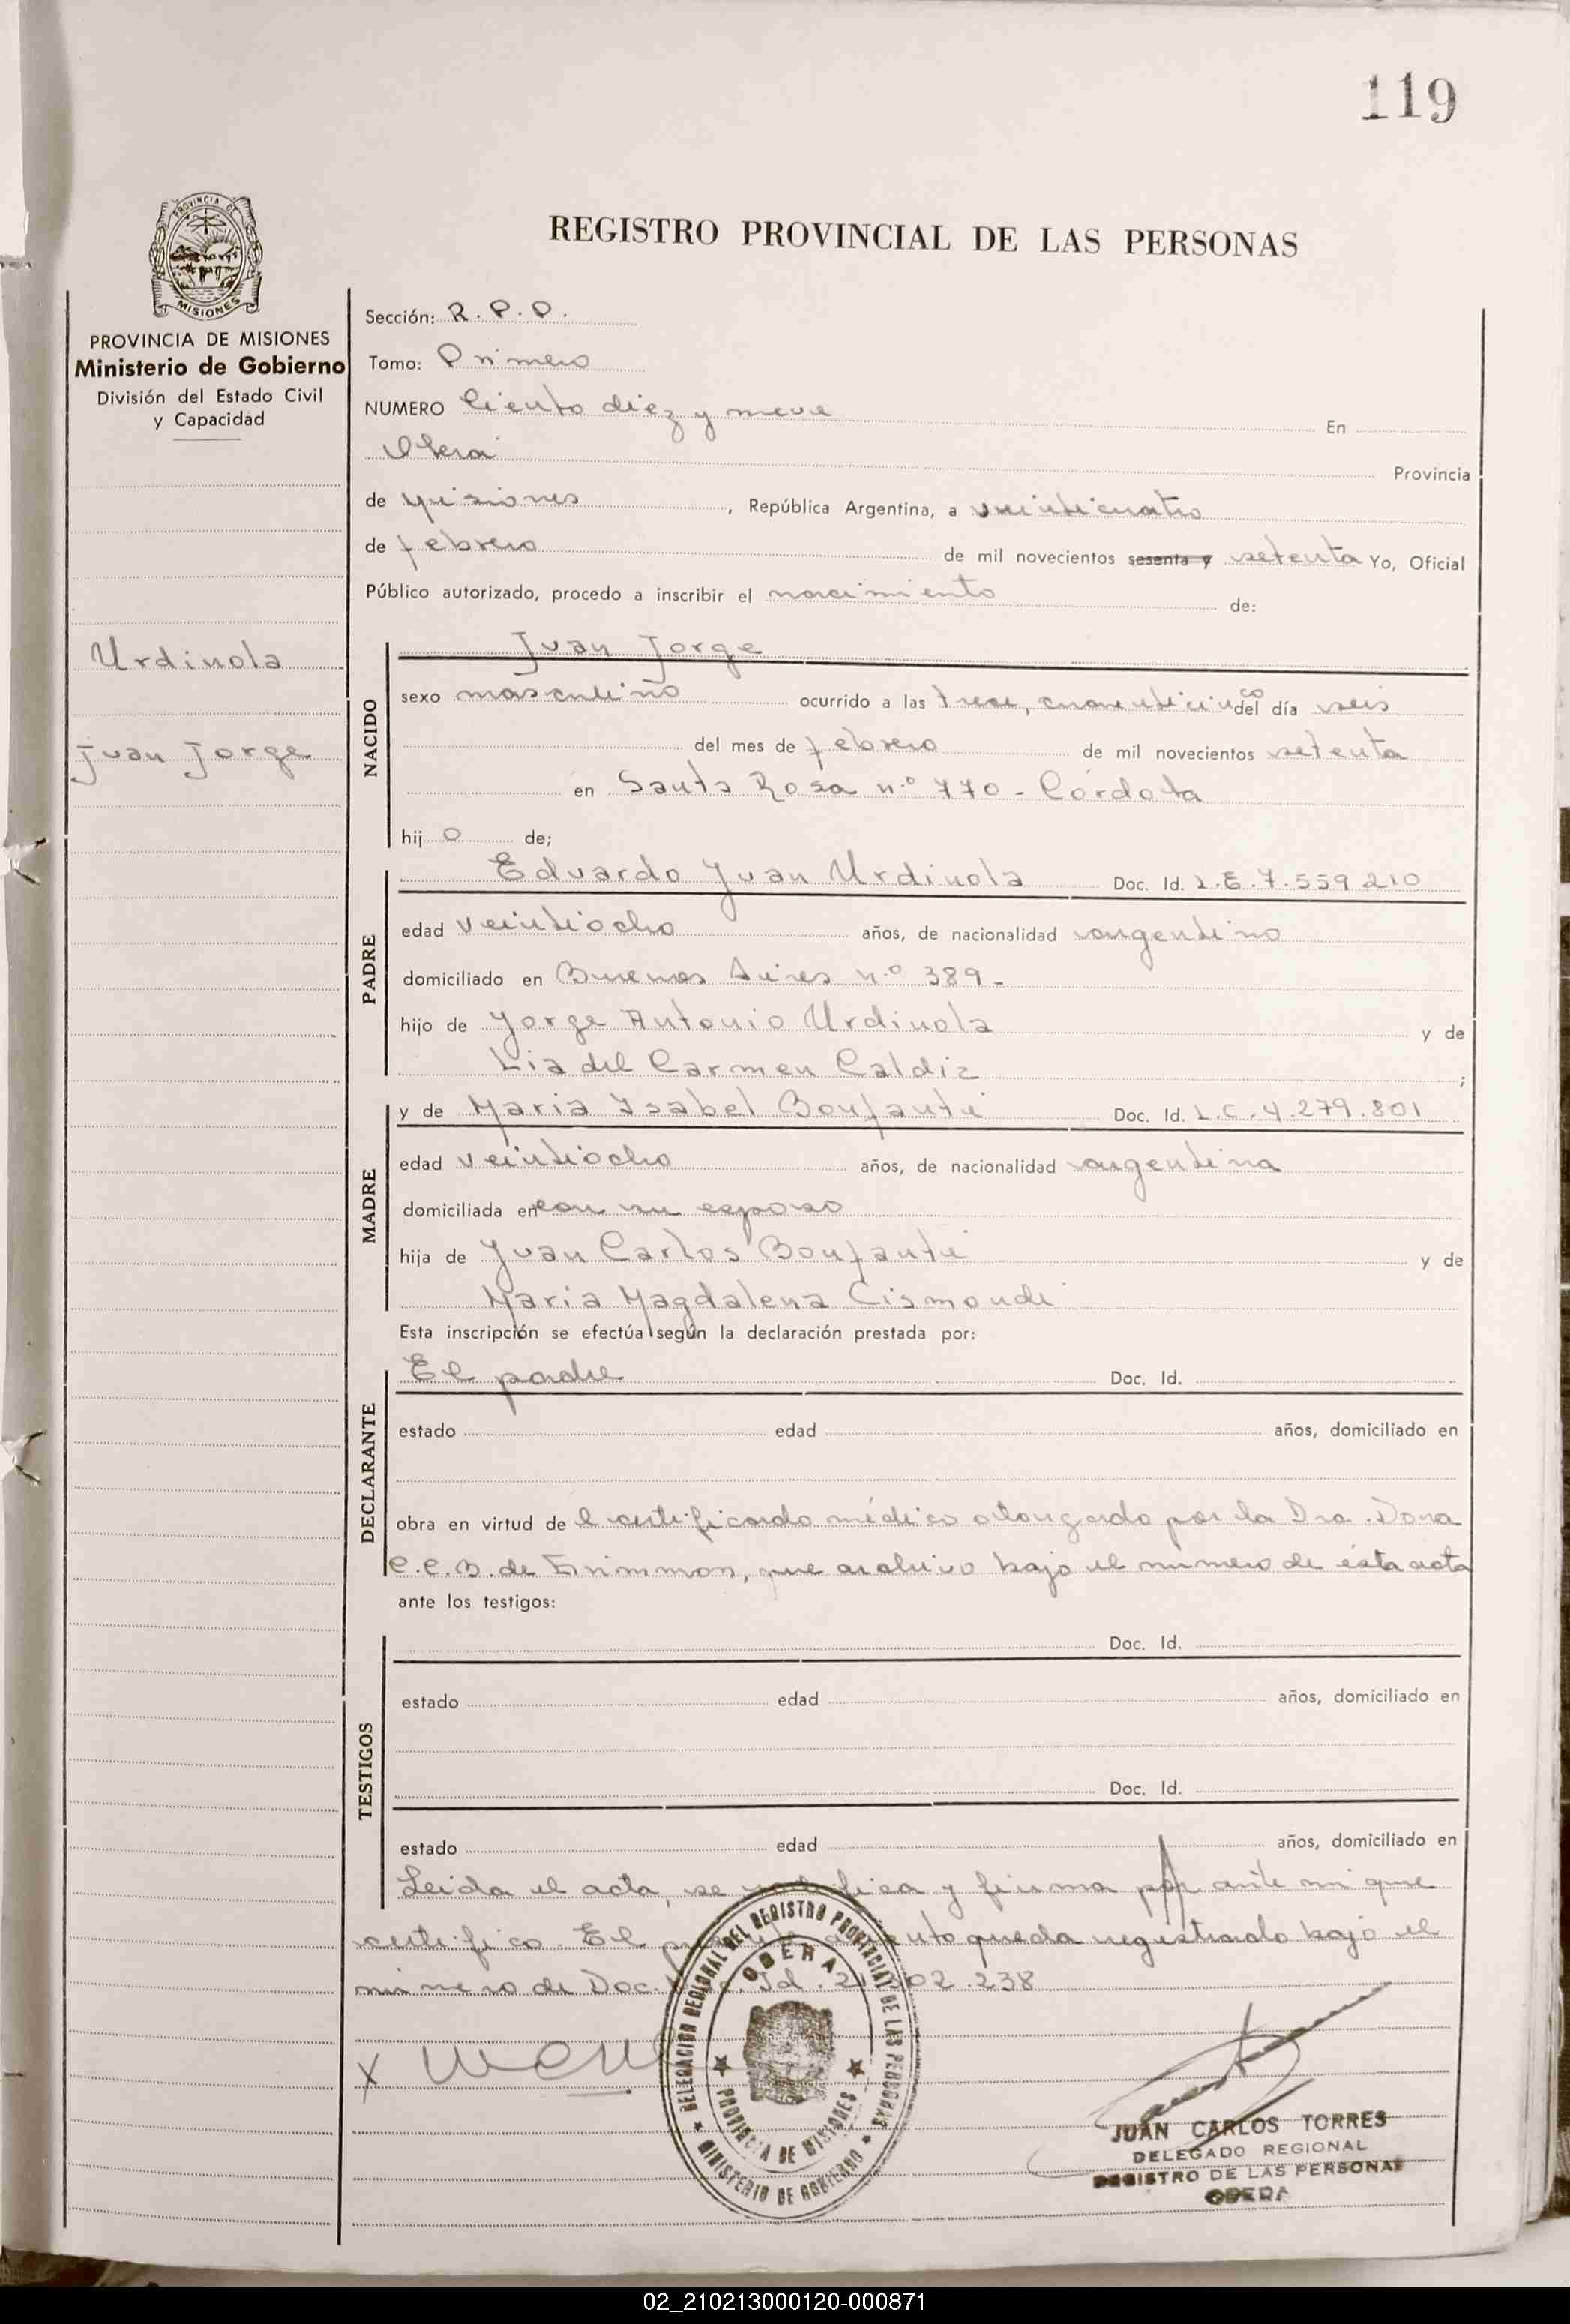 119
PROVINCIA DE
MISIONES
REGISTRO PROVINCIAL DE LAS PERSONAS
PROVINCIA DE MISIONES
Ministerio de Gobierno
División del Estado Civil
y Capacidad
Sección: R.P.P.
Tomo: Primero
NUMERO Ciento diez y nueve En
Oberá Provincia
de Misiones, República Argentina, a veinticuatro
de febrero de mil novecientos sesenta y setenta Yo, Oficial
Público autorizado, procedo a inscribir el nacimiento de:
Urdinola
Juan Jorge
NACIDO
Juan Jorge
sexo masculino ocurrido a las trece, cuarenticinco del día seis
del mes de febrero de mil novecientos setenta
en Santa Rosa n.° 770 - Córdoba
hij o de;
PADRE
Eduardo Juan Urdinola Doc. Id. L.E. 7.559.210
edad veintiocho años, de nacionalidad argentino
domiciliado en Buenos Aires n.° 389 -
hijo de Jorge Antonio Urdinola y de
Lia del Carmen Caldiz ;
MADRE
y de Maria Ysabel Bonfanti Doc. Id. L.C. 4.279.801
edad veintiocho años, de nacionalidad argentina
domiciliada en con su esposo
hija de Juan Carlos Bonfanti y de
Maria Magdalena Cismondi
Esta inscripción se efectúa según la declaración prestada por:
DECLARANTE
El padre Doc. Id.
estado edad años, domiciliado en
obra en virtud de l certificado médico otorgado por la Dra. Dora
C.C.B. de que archivo bajo el número de ésta acta
ante los testigos:
TESTIGOS
Doc. Id.
estado edad años, domiciliado en
Doc. Id.
estado edad años, domiciliado en
Leida el acta, se ratifica y firma por ante mi que
certifico. El queda registrado bajo el
número de Doc. Id. 02.238
DELEGACION REGIONAL DEL REGISTRO PROVINCIAL DE LAS PERSONAS
OBERA
PROVINCIA DE MISIONES
MINISTERIO DE GOBIERNO
X
JUAN CARLOS TORRES
DELEGADO REGIONAL
REGISTRO DE LAS PERSONAS
OBERA
02_210213000120-000871